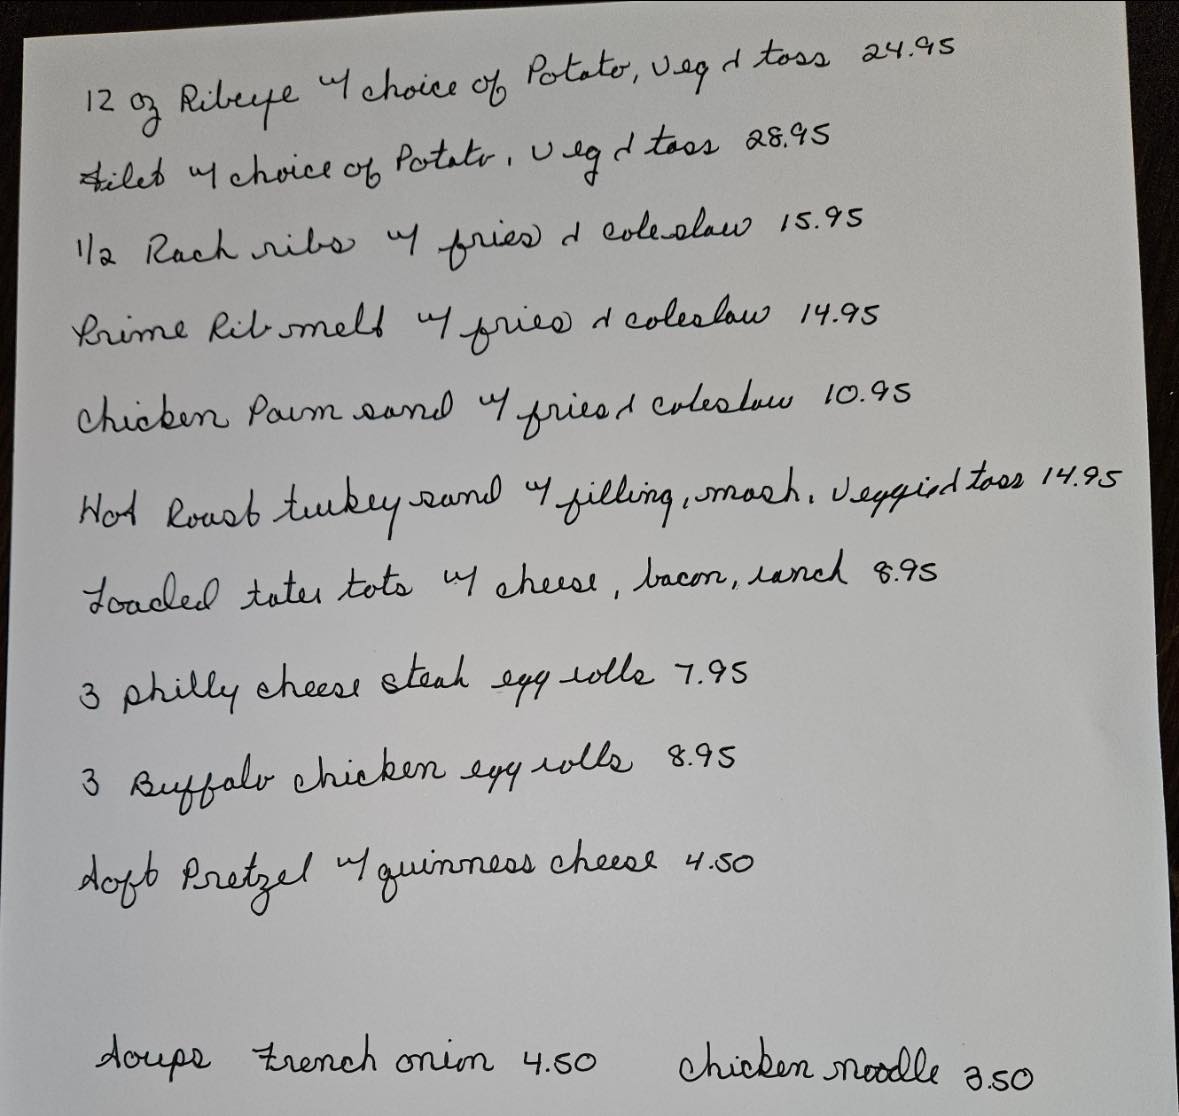 12 oz Ribeye w/ choice of Potato, veg & toss 24.95
filet w/ choice of Potato, veg & toss 28.95
1/2 Rack ribs w/ fries & coleslaw 15.95
Prime Rib melt w/ fries & coleslaw 14.95
Chicken Parm sand w/ fries & coleslaw 10.95
Hot Roast turkey sand w/ filling, mash, veggie & toss 14.95
Loaded tater tots w/ cheese, bacon, ranch 8.95
3 philly cheese steak egg rolls 7.95
3 Buffalo chicken egg rolls 8.95
Soft Pretzel w/ guinness cheese 4.50
Soups French onion 4.50 Chicken noodle 3.50